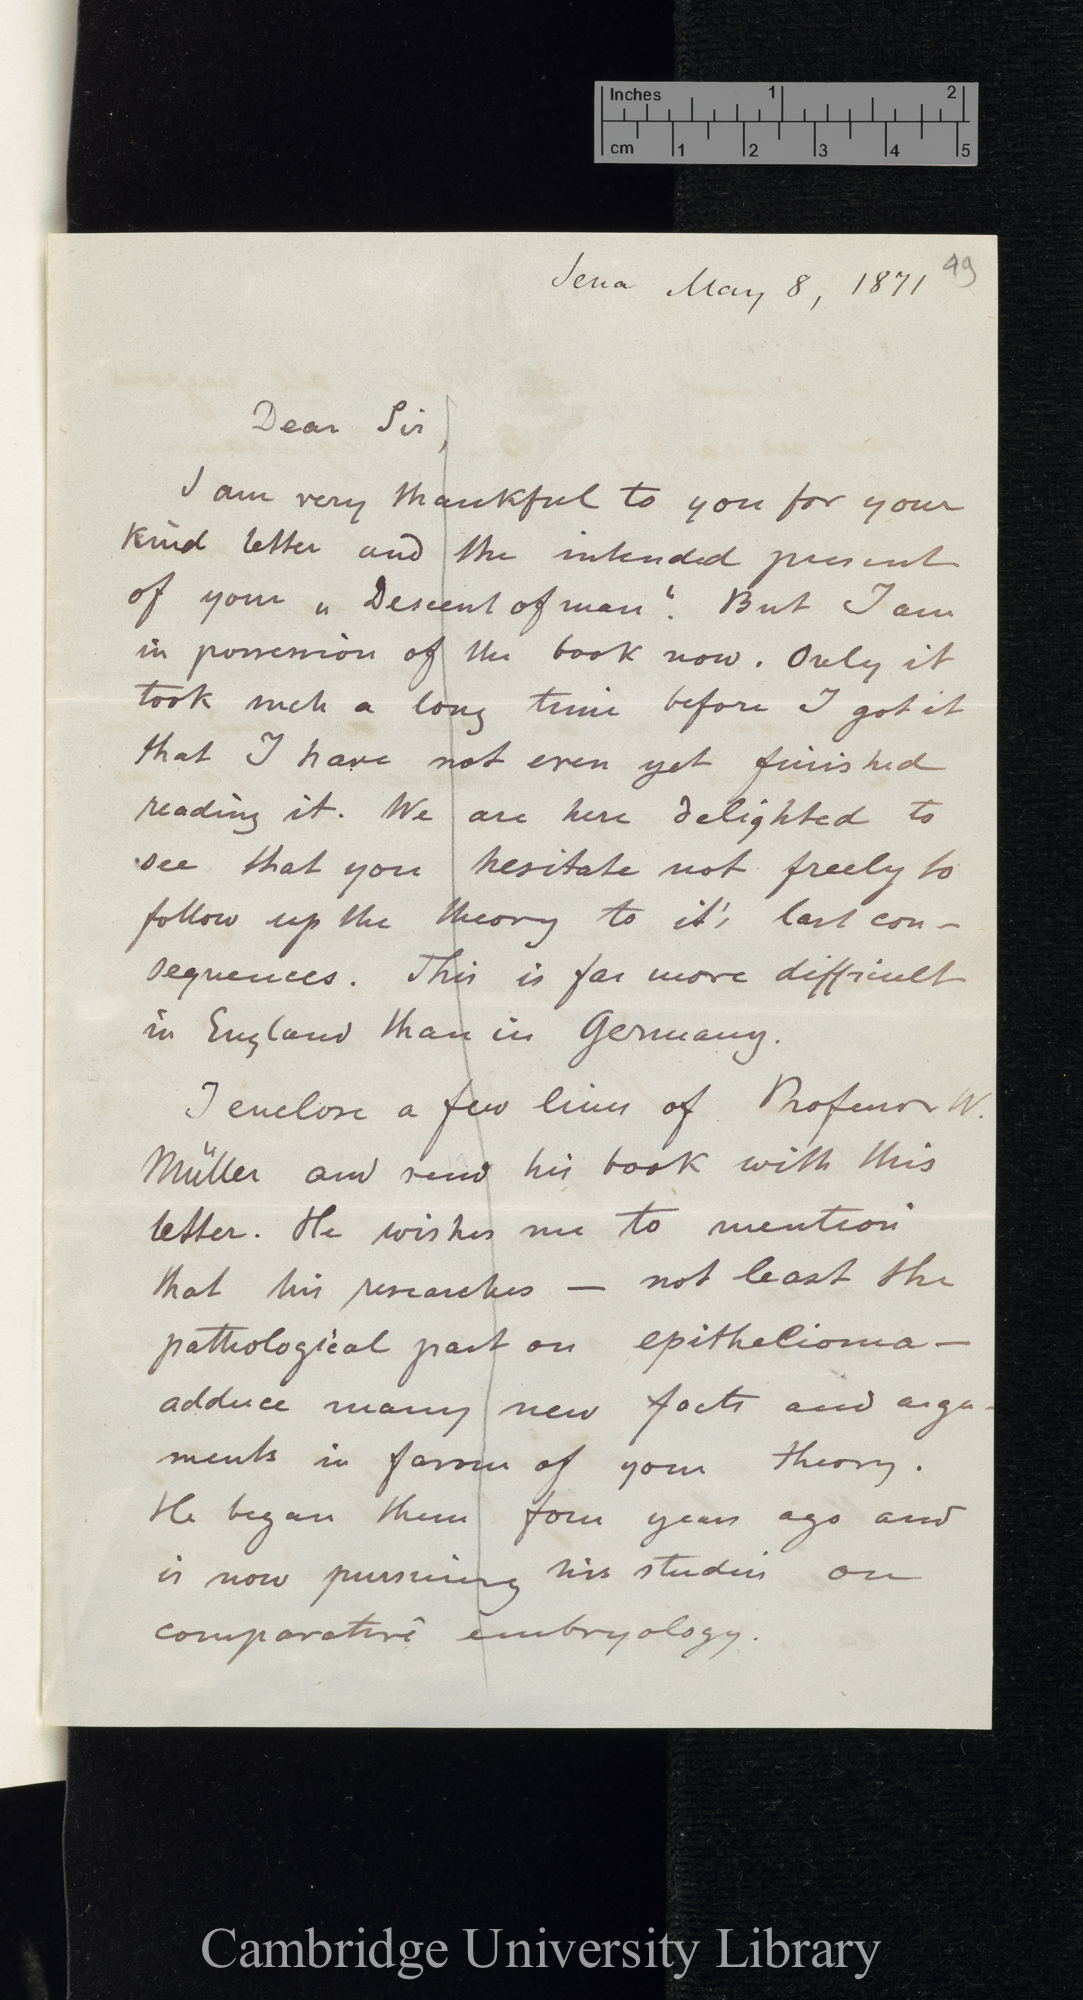 Inches 1 2
cm 1 2 3 4 5
49
Jena May 8, 1871
Dear Sir,
I am very thankful to you for your
kind letter and the intended present
of your „Descent of man“. But I am
in possession of the book now. Only it
took such a long time before I got it
that I have not even yet finished
reading it. We are here delighted to
see that you hesitate not freely to
follow up the theory to it's last con-
sequences. This is far more difficult
in England than in Germany.
I enclose a few lines of Professor W.
Müller and send his book with this
letter. He wishes me to mention
that his researches — not least the
pathological part on epithelioma —
adduce many new facts and argu-
ments in favour of your theory.
He began them four years ago and
is now pursuing his studies on
comparative embryology.
Cambridge University Library